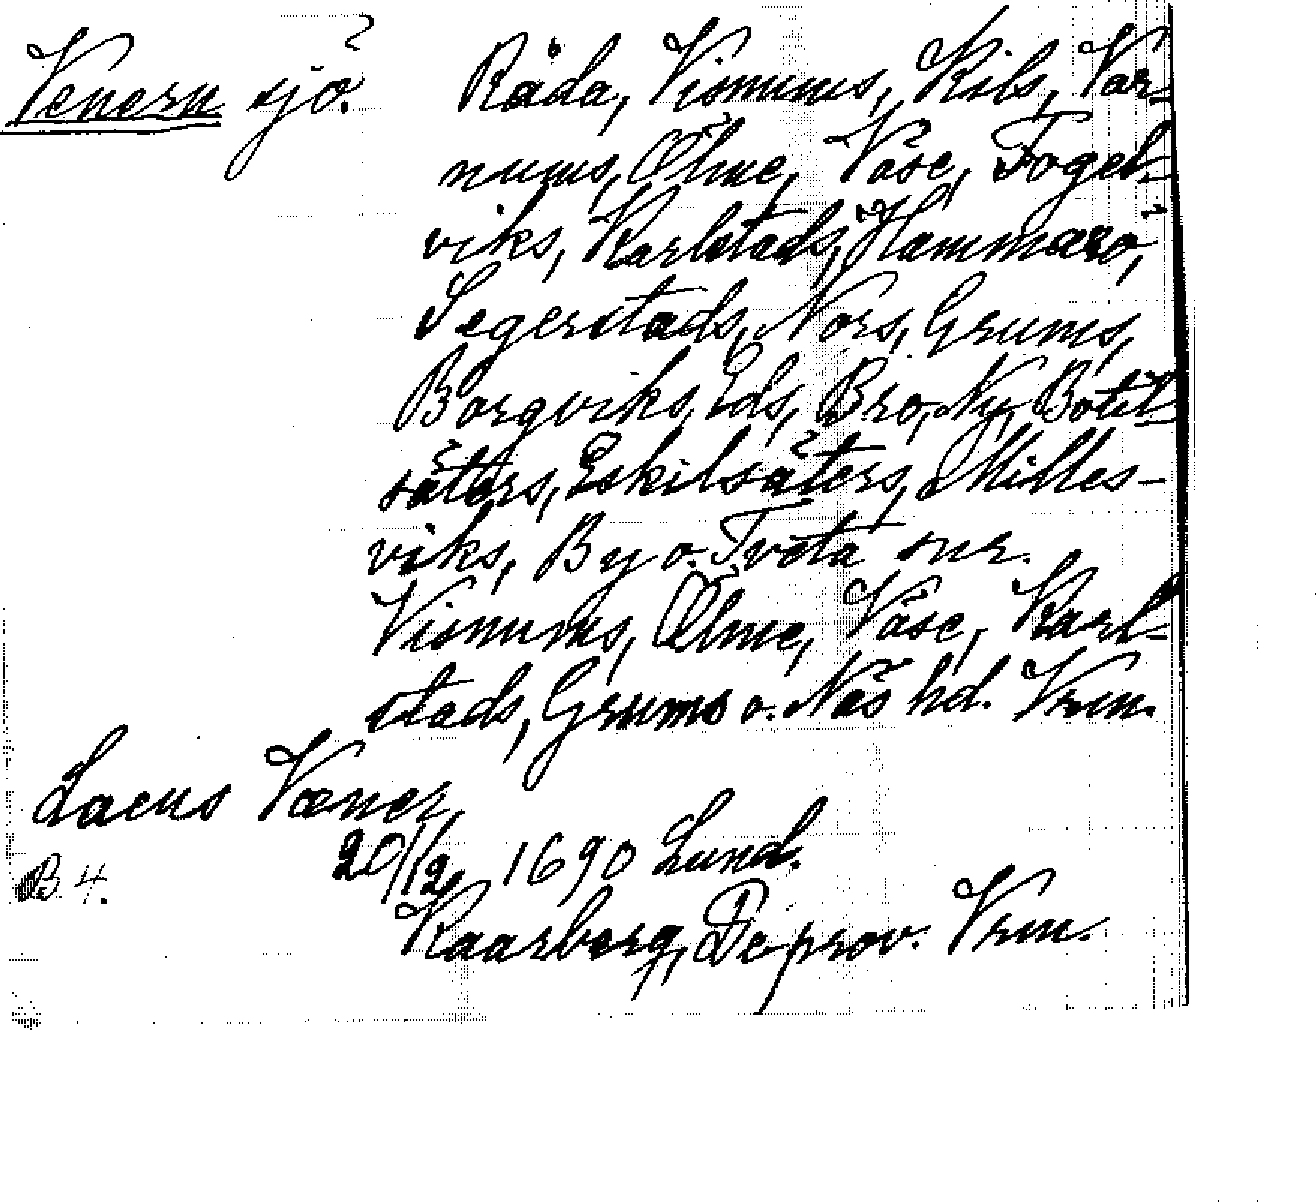 Venern sjö. Råda, Visnums, Kils, Var-
nums, Ölme, Väse, Fogel-
viks, Karlstads, Hammarö,
Segerstads, Nors, Grums,
Borgviks, Eds, Bro, Ny, Botil-
säters, Eskilsäters, Milles-
viks, By o. Tveta snr.
Visnums, Ölme, Väse, Karl-
stads, Grums o. Näs hd. Vrm.
Lacus Væner
20/12 1690 Lund.
B. 4.
Kaarberg, De prov. Vrm.